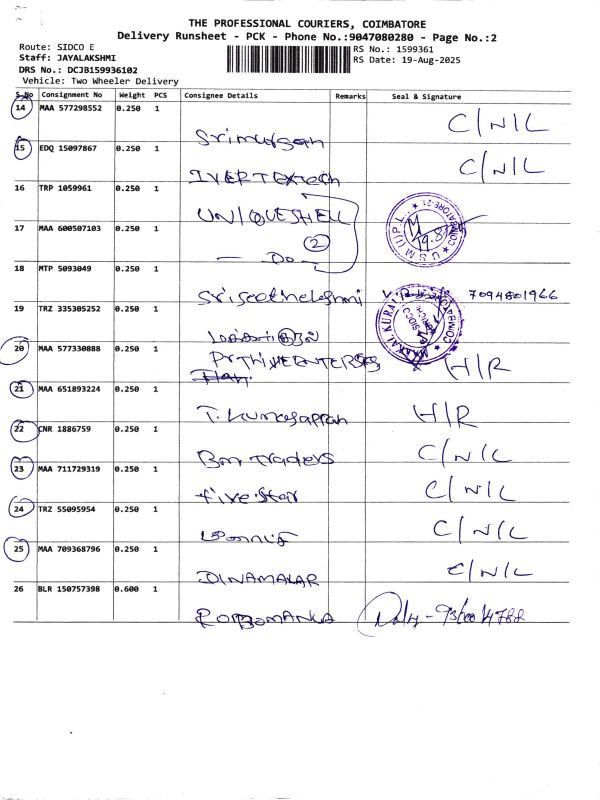 THE PROFESSIONAL COURIERS, COIMBATORE
Delivery Runsheet - PCK - Phone No.:9047080280 - Page No.:2
Route: SIDCO E
RS No.: 1599361
Staff: JAYALAKSHMI
RS Date: 19-Aug-2025
DRS No.: DCJB159936102
Vehicle: Two Wheeler Delivery
S.No Consignment No Weight PCS Consignee Details Remarks Seal & Signature
14 MAA 577298552 0.250 1 C/N/L
Srimurgan
15 EDQ 15097867 0.250 1 C/N/L
IVERTEXtech
16 TRP 1059961 0.250 1
UNIQUESHELL
17 MAA 600507103 0.250 1
2
Do
18 MTP 5093049 0.250 1
Sriseethalakshmi 7094801966
19 TRZ 335305252 0.250 1
மக்கள்குரல்
20 MAA 577330888 0.250 1 H/R
21 MAA 651893224 0.250 1 H/R
22 CNR 1886759 0.250 1 C/N/L
Bm Traders
23 MAA 711729319 0.250 1 C/N/L
Five Star
24 TRZ 55095954 0.250 1 C/N/L
25 MAA 709368796 0.250 1 C/N/L
DINAMALAR
26 BLR 150757398 0.600 1